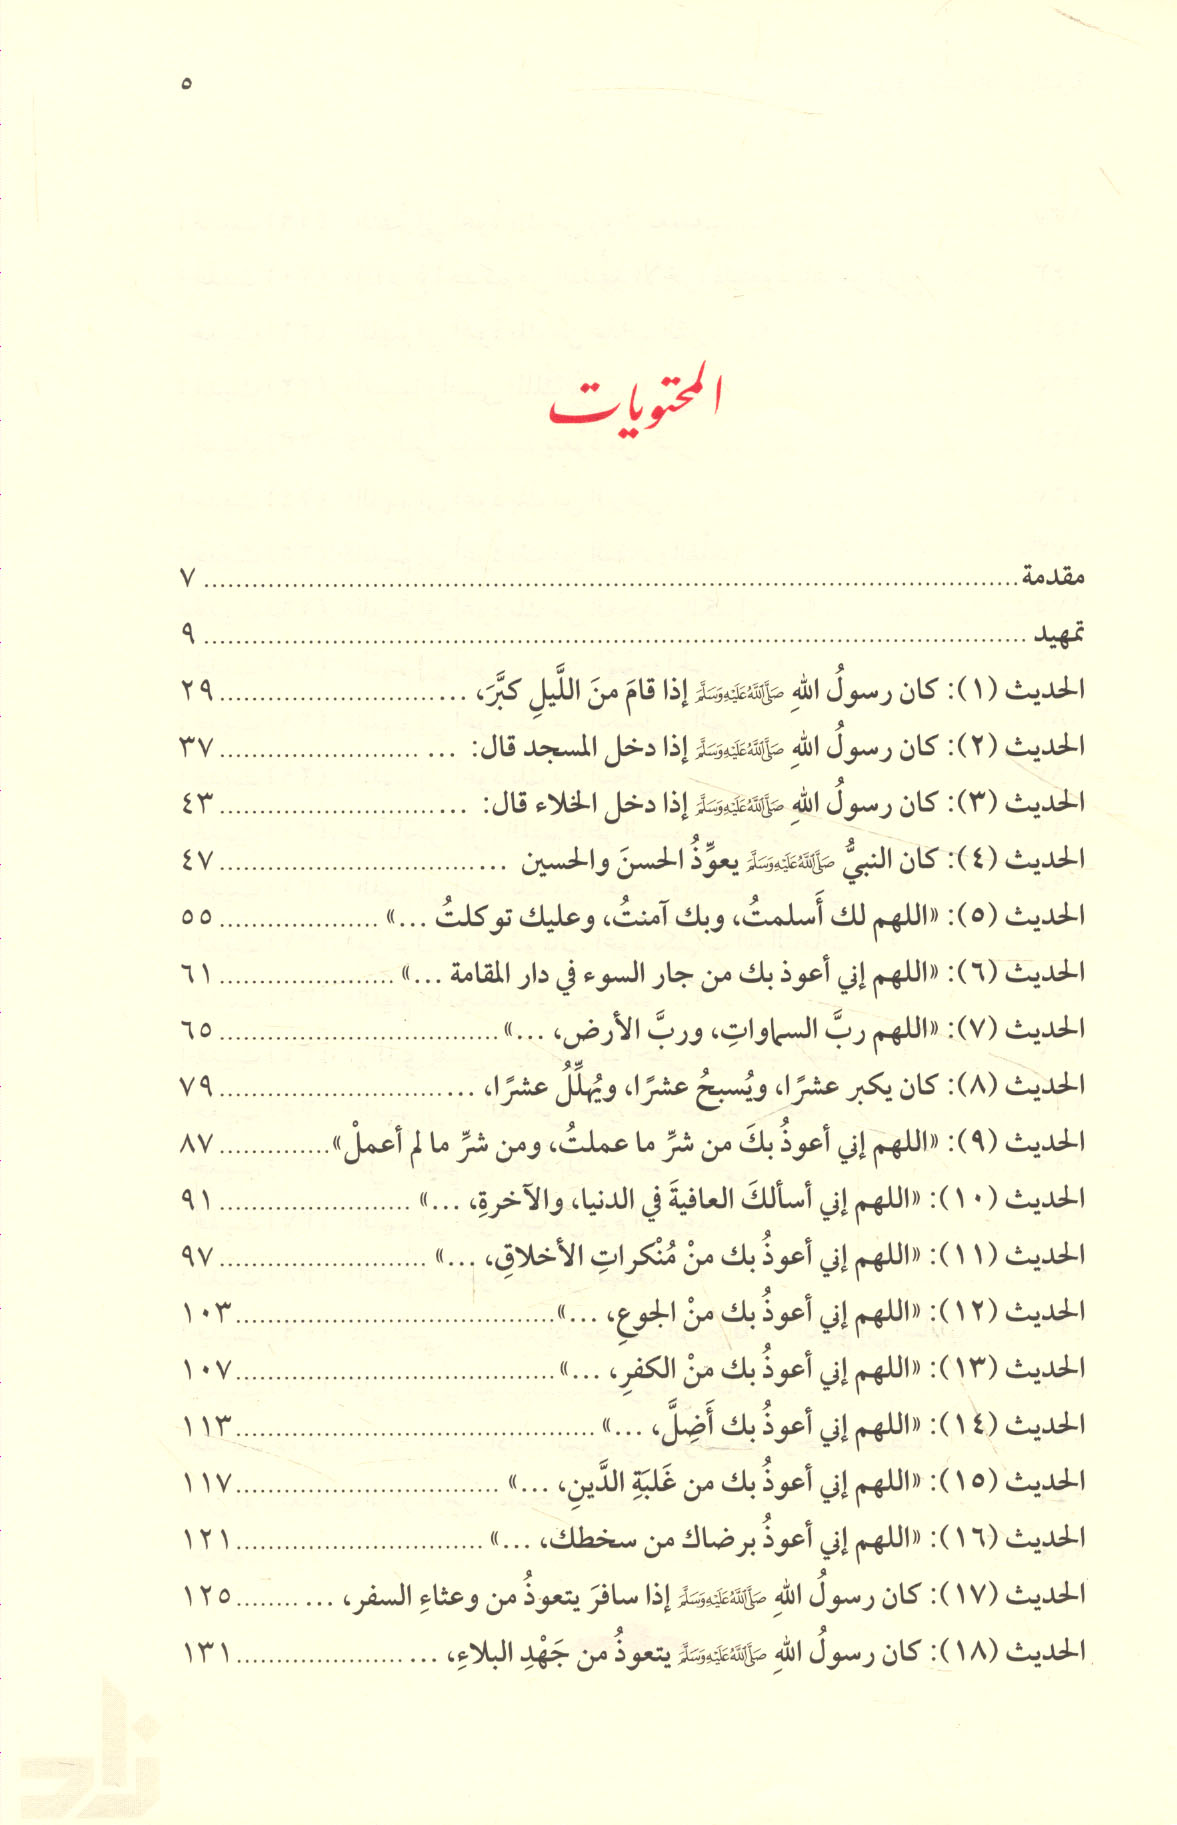 ٥
المحتويات
مقدمة ........ ٧
تمهيد ........ ٩
الحديث (١): كان رسولُ اللهِ ﷺ إذا قامَ منَ اللَّيلِ كبَّرَ، ... ........ ٢٩
الحديث (٢): كان رسولُ اللهِ ﷺ إذا دخل المسجد قال: ... ........ ٣٧
الحديث (٣): كان رسولُ اللهِ ﷺ إذا دخل الخلاء قال: ... ........ ٤٣
الحديث (٤): كان النبيُّ ﷺ يعوِّذُ الحسنَ والحسين ... ........ ٤٧
الحديث (٥): «اللهم لك أَسلمتُ، وبك آمنتُ، وعليك توكلتُ ...» ........ ٥٥
الحديث (٦): «اللهم إني أعوذ بك من جار السوء في دار المقامة ...» ........ ٦١
الحديث (٧): «اللهم ربَّ السماواتِ، وربَّ الأرض، ...» ........ ٦٥
الحديث (٨): كان يكبر عشرًا، ويُسبحُ عشرًا، ويُهلِّلُ عشرًا، ... ........ ٧٩
الحديث (٩): «اللهم إني أعوذُ بكَ من شرِّ ما عملتُ، ومن شرِّ ما لم أعملْ» ........ ٨٧
الحديث (١٠): «اللهم إني أسألكَ العافيةَ في الدنيا، والآخرةِ، ...» ........ ٩١
الحديث (١١): «اللهم إني أعوذُ بك منْ مُنْكراتِ الأخلاقِ، ...» ........ ٩٧
الحديث (١٢): «اللهم إني أعوذُ بك منْ الجوعِ، ...» ........ ١٠٣
الحديث (١٣): «اللهم إني أعوذُ بك منْ الكفرِ، ...» ........ ١٠٧
الحديث (١٤): «اللهم إني أعوذُ بك أَضِلَّ، ...» ........ ١١٣
الحديث (١٥): «اللهم إني أعوذُ بك من غَلبَةِ الدَّينِ، ...» ........ ١١٧
الحديث (١٦): «اللهم إني أعوذُ برضاك من سخطك، ...» ........ ١٢١
الحديث (١٧): كان رسولُ اللهِ ﷺ إذا سافرَ يتعوذُ من وعثاءِ السفر، ... ........ ١٢٥
الحديث (١٨): كان رسولُ اللهِ ﷺ يتعوذُ من جَهْدِ البلاءِ، ... ........ ١٣١